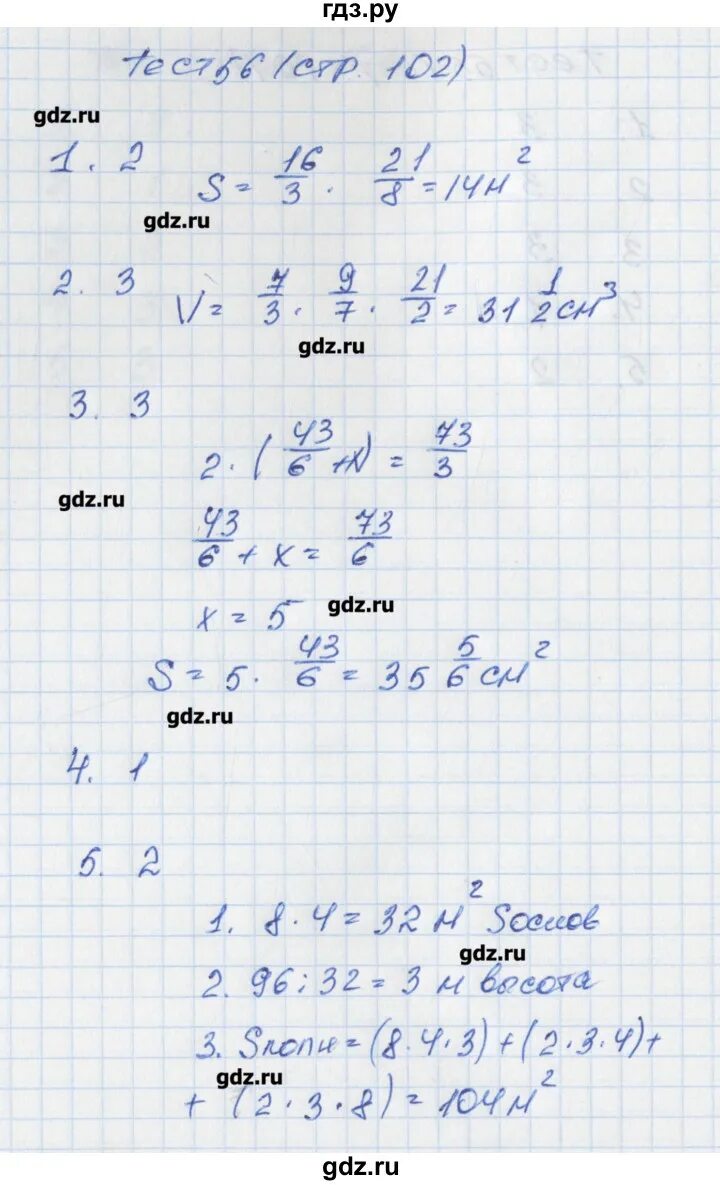 гдз.ру
Тест 56 (стр. 102)
gdz.ru
1. 2
S = 16/3 · 21/8 = 14 м²
gdz.ru
2. 3
V = 7/3 · 9/7 · 21/2 = 31 1/2 см³
gdz.ru
3. 3
2 · (43/6 + x) = 73/3
gdz.ru
43/6 + x = 73/6
x = 5
gdz.ru
S = 5 · 43/6 = 35 5/6 см²
gdz.ru
4. 1
5. 2
1. 8 · 4 = 32 м² Sоснов
gdz.ru
2. 96 : 32 = 3 м высота
3. Sполн = (8 · 4 · 3) + (2 · 3 · 4) +
gdz.ru
+ (2 · 3 · 8) = 104 м²
gdz.ru